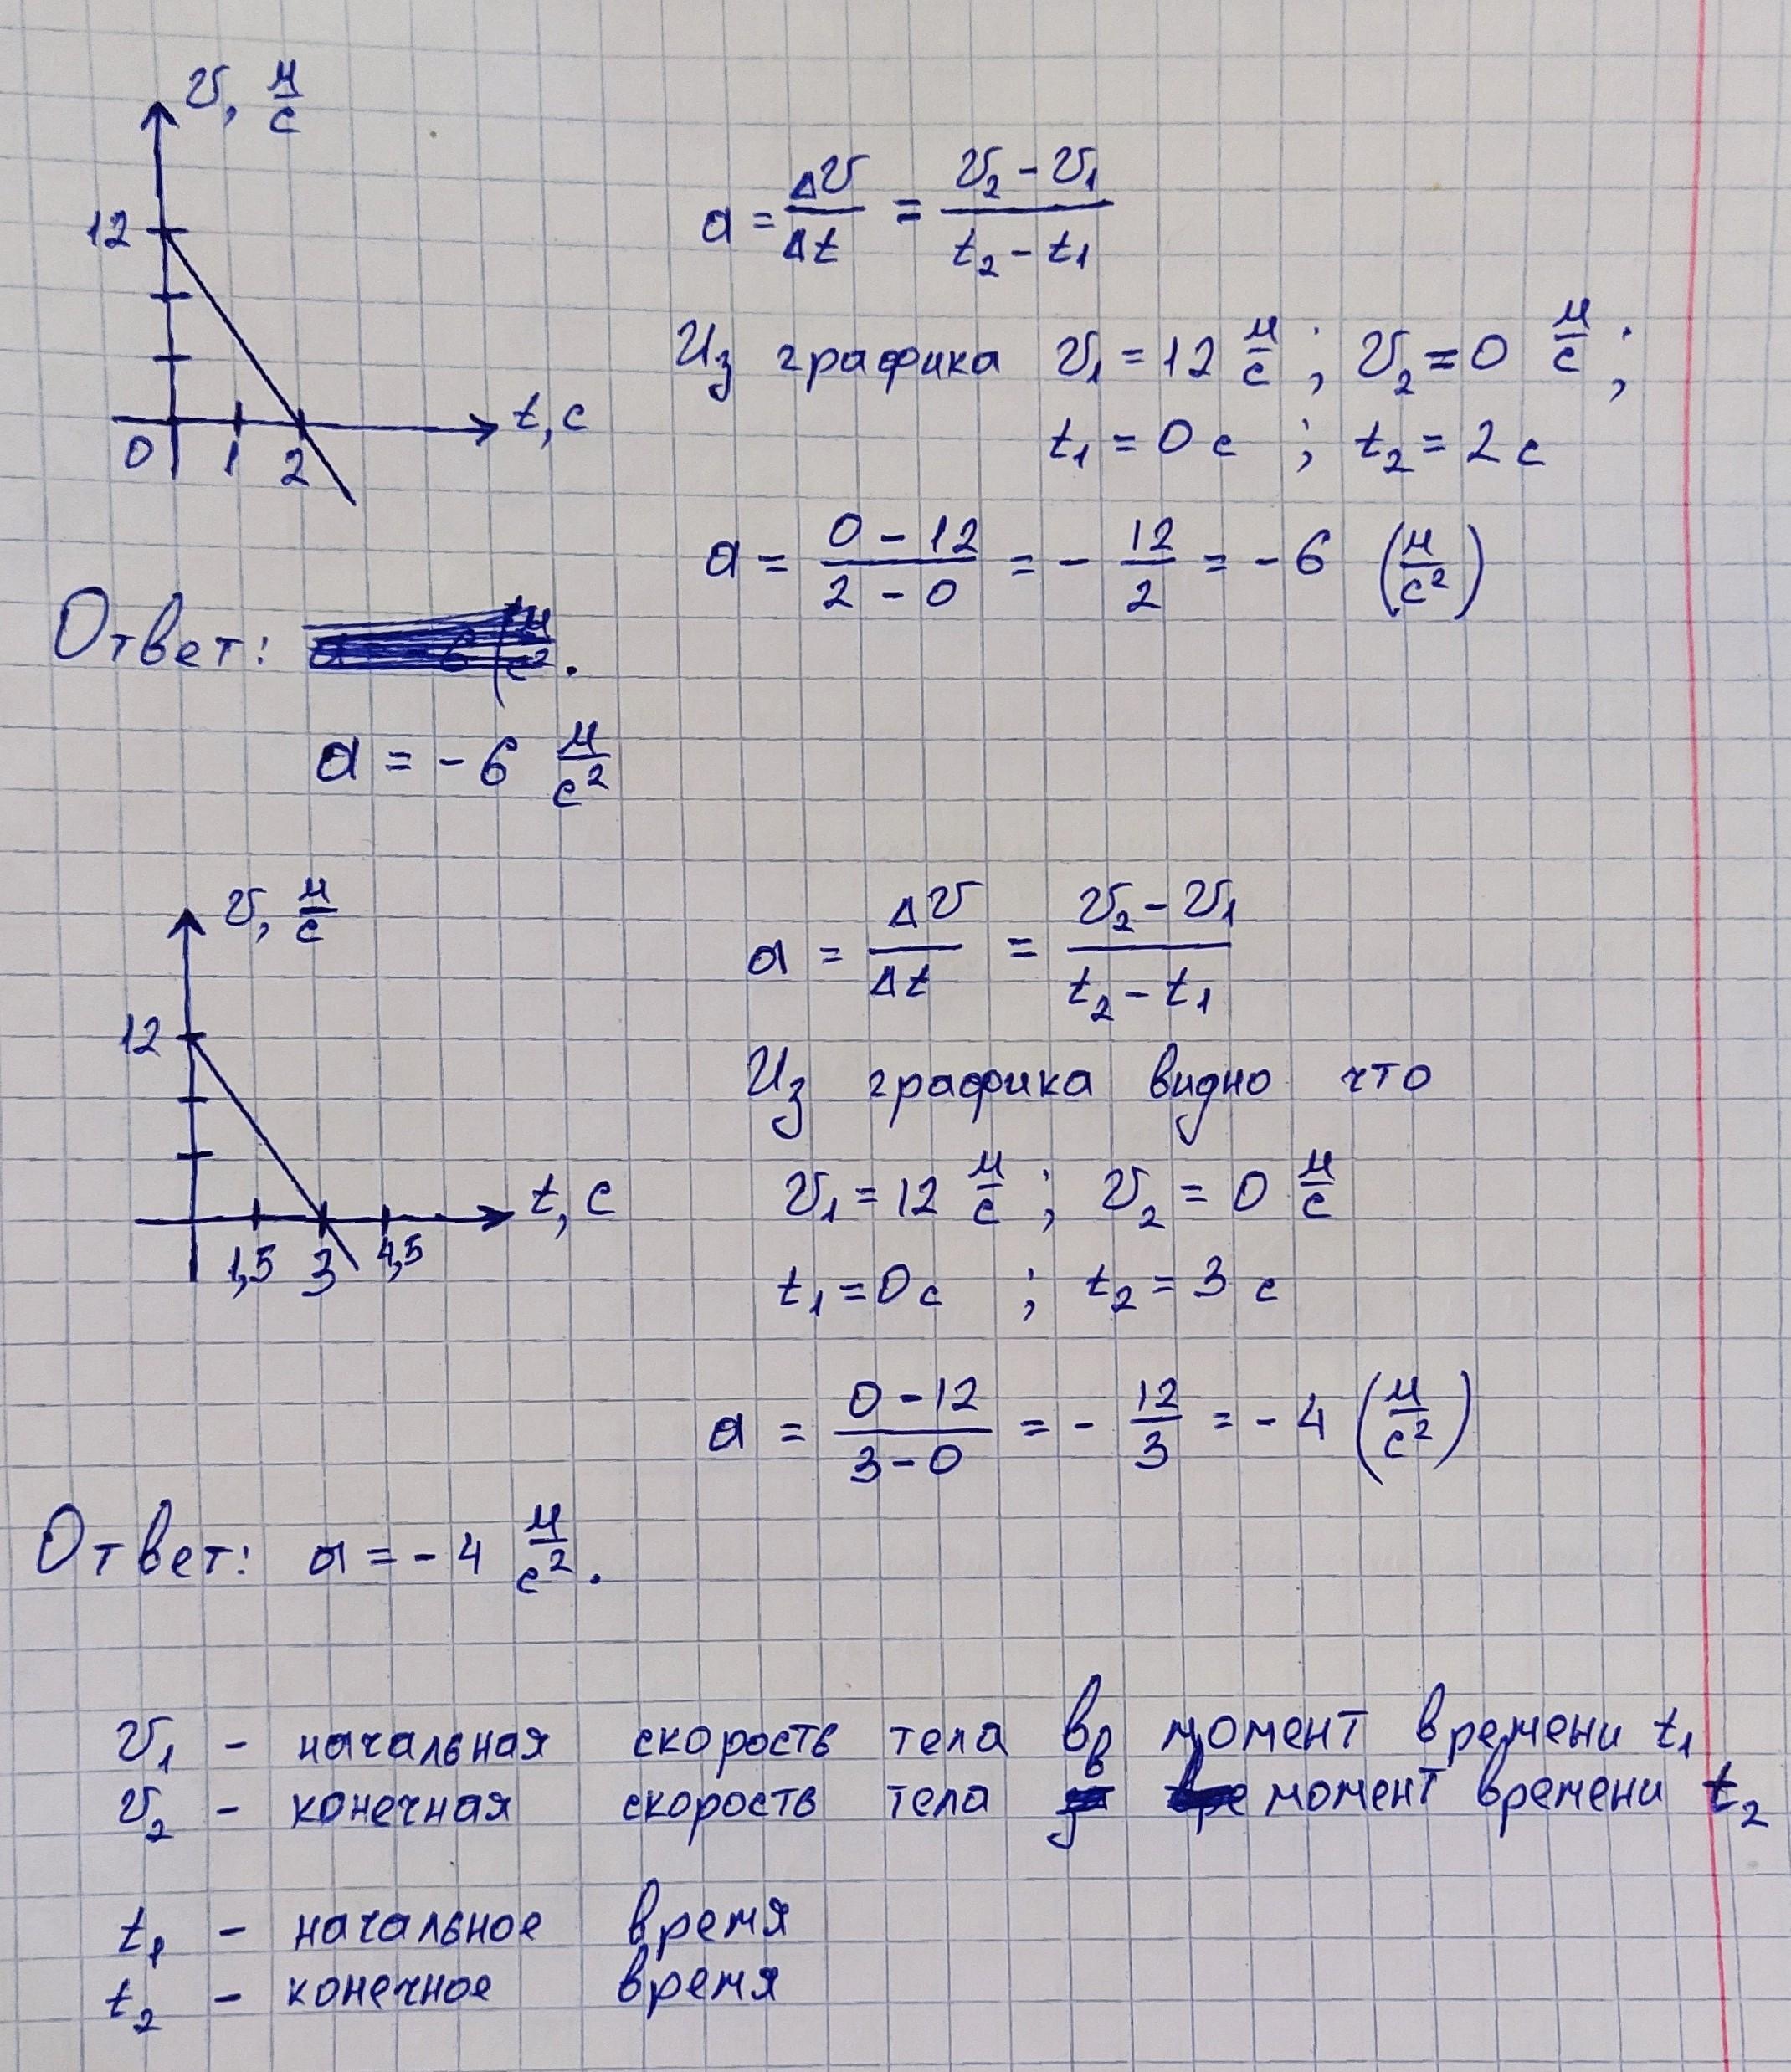 υ, м/с
12
0 1 2 t, c
a = Δυ/Δt = (υ₂ - υ₁)/(t₂ - t₁)
Из графика υ₁ = 12 м/с ; υ₂ = 0 м/с ;
t₁ = 0 c ; t₂ = 2 c
a = (0 - 12)/(2 - 0) = - 12/2 = - 6 (м/с²)
Ответ: .
a = - 6 м/с²
υ, м/с
12
1,5 3 4,5 t, c
a = Δυ/Δt = (υ₂ - υ₁)/(t₂ - t₁)
Из графика видно что
υ₁ = 12 м/с ; υ₂ = 0 м/с
t₁ = 0 c ; t₂ = 3 c
a = (0 - 12)/(3 - 0) = - 12/3 = - 4 (м/с²)
Ответ: a = - 4 м/с².
υ₁ - начальная скорость тела в момент времени t₁
υ₂ - конечная скорость тела в момент времени t₂
t₁ - начальное время
t₂ - конечное время